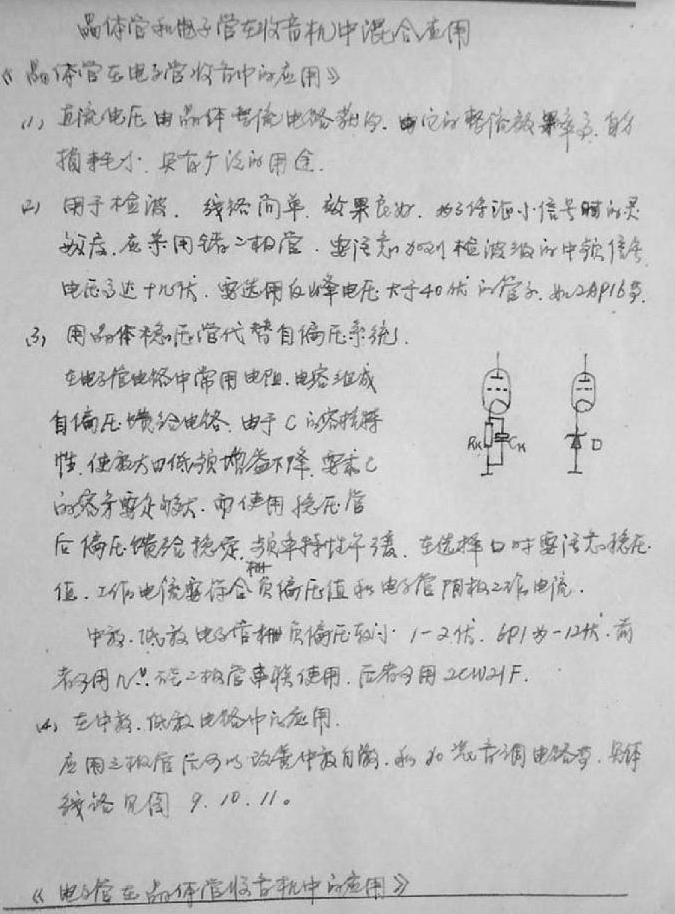 晶体管和电子管在收音机中混合应用
《晶体管在电子管收音中的应用》
(1) 直流电压由晶体整流电路供给. 由它的整流效率高. 自身
损耗小. 具有广泛的用途.
(2) 用于检波. 线路简单. 效果良好. 为了保证小信号时的灵
敏度. 应采用锗二极管. 要注意加到检波级的中频信号
电压高达十几伏. 要选用反峰电压大于40伏的管子. 如2AP16等.
(3) 用晶体稳压管代替自偏压系统.
在电子管电路中常用电阻. 电容组成
自偏压馈给电路. 由于C的容抗特
性. 使放大器低频增益下降. 要求C
的容量要足够大. 而使用稳压管
RK
CK
D
后偏压馈给稳定. 频率特性平缓. 在选择D时要注意稳压
值. 工作电流要符合栅负偏压值和电子管阴极工作电流.
中放. 低放电子管栅负偏压较小. 1-2伏. 6P1为-12伏. 前
者可用几只二极管串联使用. 后者可用2CW21F.
(4) 在中放. 低放电路中的应用.
应用三极管后可以改善中放自激. 和加装音调电路等. 具体
线路见图 9. 10. 11。
《电子管在晶体管收音机中的应用》